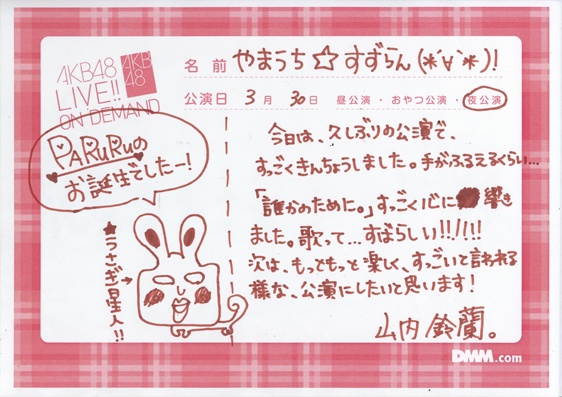 AKB48
LIVE!!
ON DEMAND
AKB
48
名前 やまうち☆すずらん(*´∀`*)!
公演日 3月 30日 昼公演・おやつ公演・夜公演
PARURUの
お誕生でしたー!
★うさぎ星人!!
今日は、久しぶりの公演で、
すっごくきんちょうしました。手がふるえるくらい…
「誰かのために。」すっごく心に響き
ました。歌って…すばらしい!!/!!!
次は、もっともっと楽しく、すっごいと言われる
様な、公演にしたいと思います!
山内鈴蘭。
DMM.com